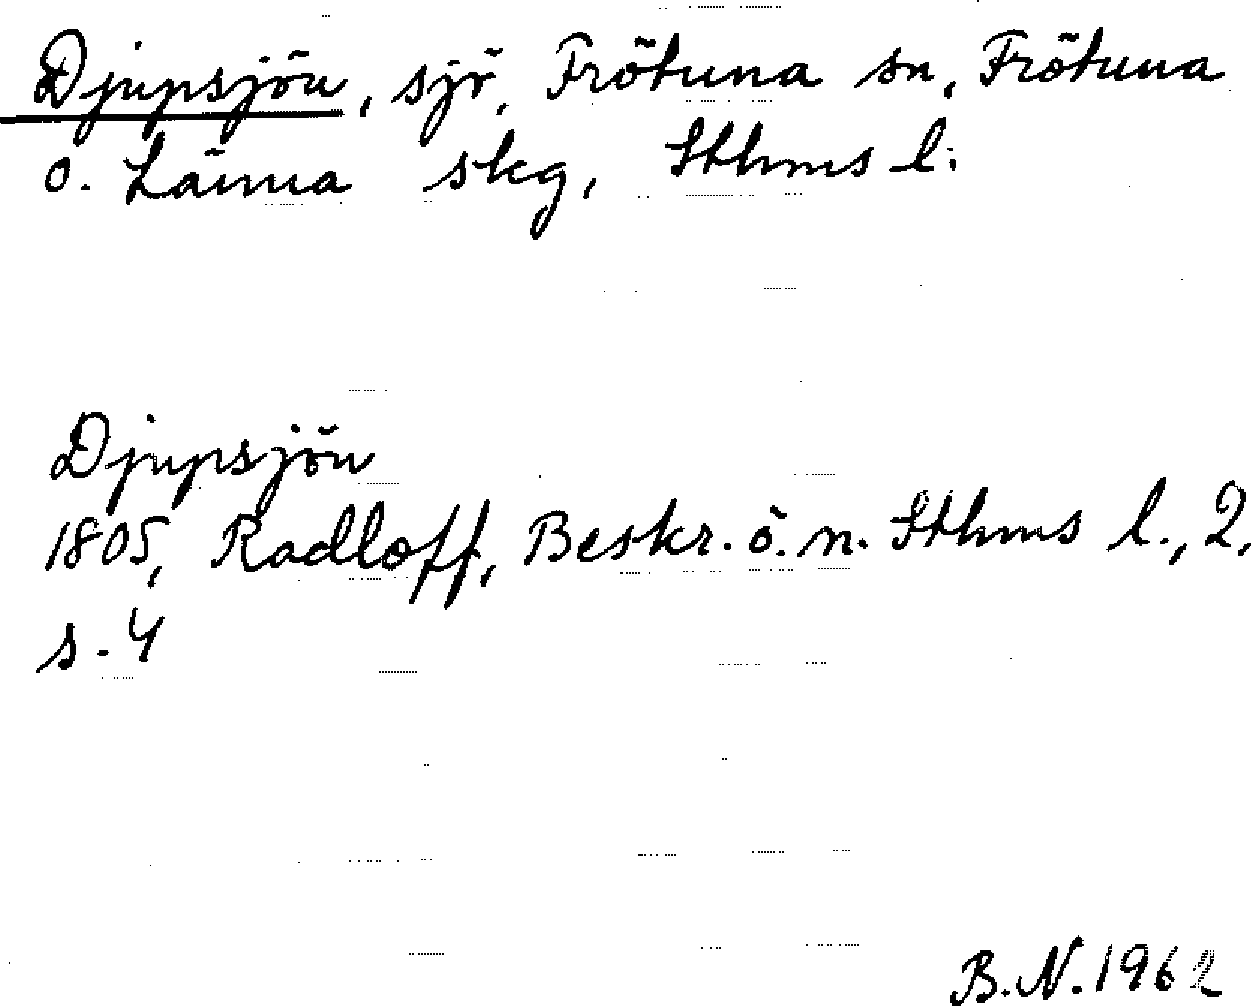 Djupsjön, sjö, Frötuna sn, Frötuna
o. Länna skg, Sthms l.
Djupsjön
1805, Radloff, Beskr. ö. n. Sthms l., 2,
s. 4
B.N. 1962